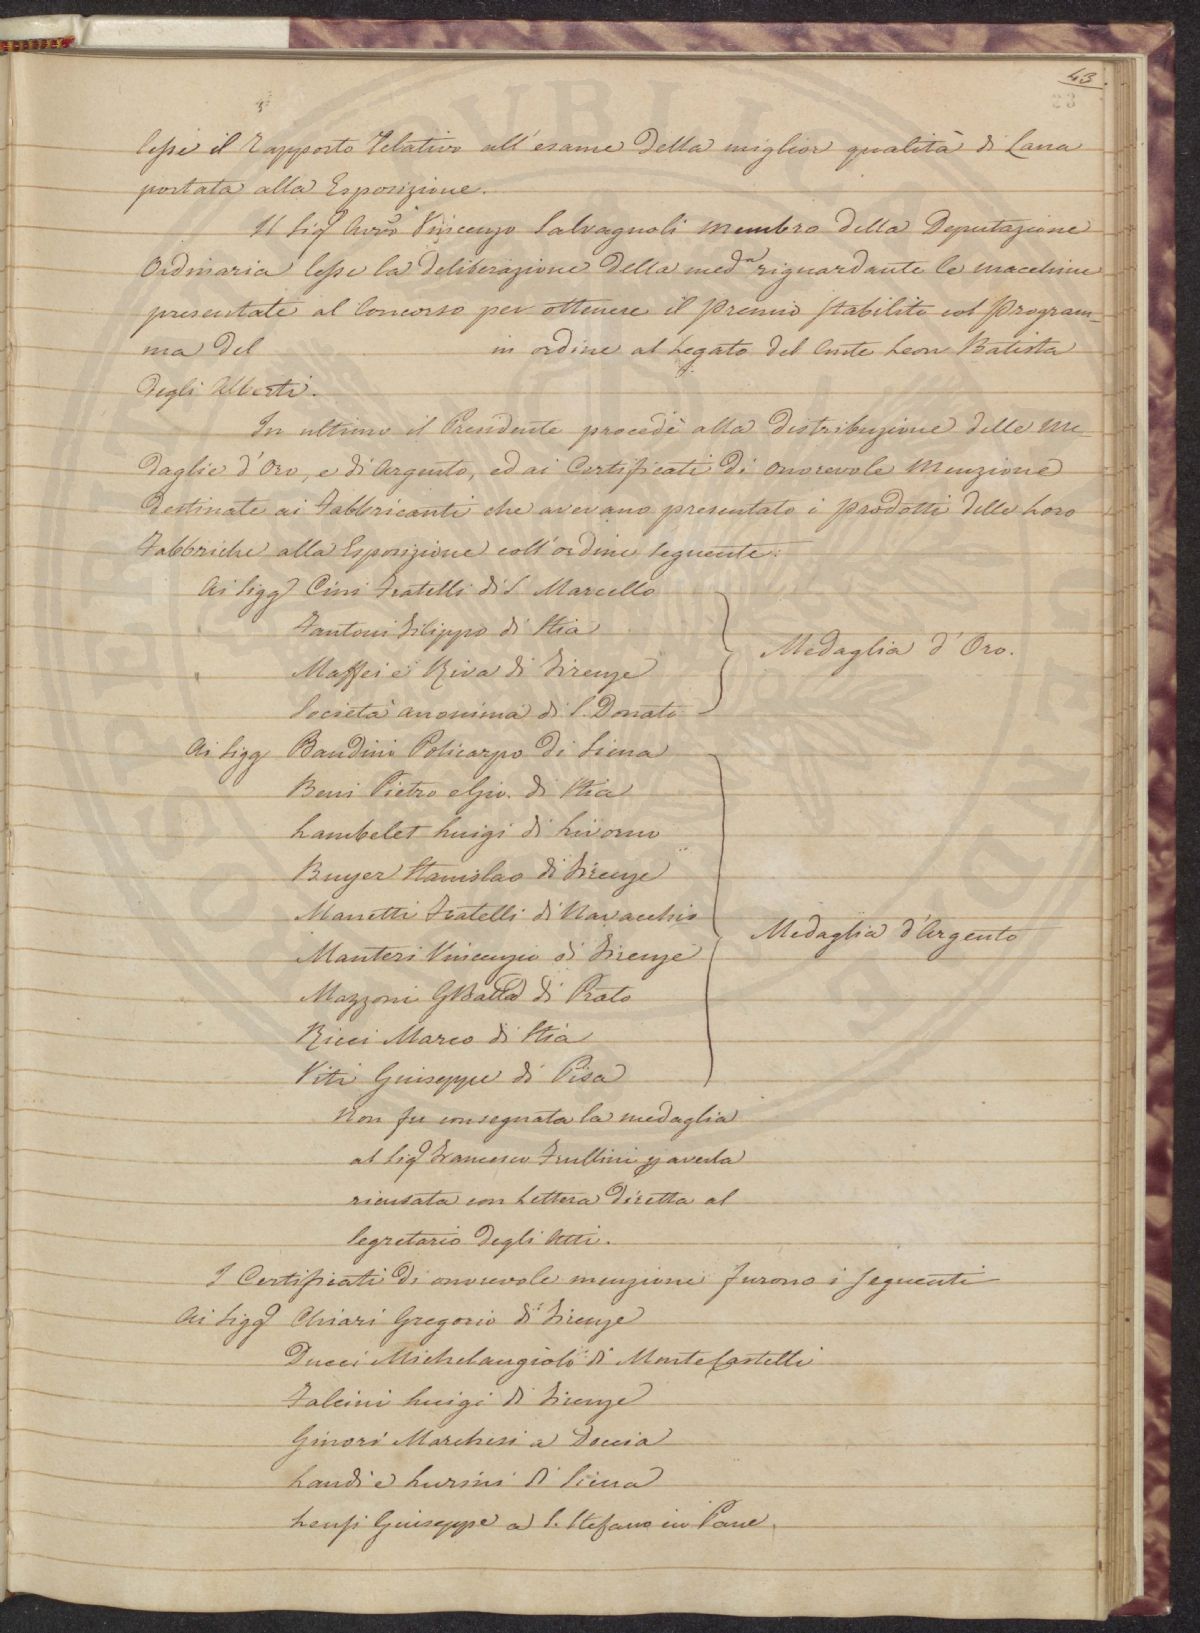 43.
lesse il Rapporto Relativo all'esame della miglior qualità di Lana
portata alla Esposizione.
Il Sigr Avvo Vincenzo Salvagnoli Membro della Deputazione
Ordinaria lesse la deliberazione della meda riguardante le macchine
presentate al Concorso per ottenere il Premio stabilito col Program-
ma del in ordine al Legato del Conte Leon Batista
degli Alberti.
In ultimo il Presidente procedè alla distribuzione delle Me-
daglie d'Oro, e di Argento, ed ai Certificati di onorevole Menzione
destinate ai Fabbricanti che avevano presentato i prodotti delle Loro
Fabbriche alla Esposizione coll'ordine seguente:
Ai Sigg Cini Fratelli di S. Marcello
Fantoni Filippo di Stia
Maffei e Riva di Firenze
Medaglia d'Oro.
Società anonima di S. Donato
Ai Sigg Bandini Policarpo di Siena
Beni Pietro e Gio. di Stia
Lambelet Luigi di Livorno
Buyer Stanislao di Firenze
Manetti Fratelli di Navacchio
Medaglia d'Argento
Manteri Vincenzio di Firenze
Mazzoni GBatta di Prato
Ricci Marco di Stia
Viti Giuseppe di Pisa
Non fu consegnata la medaglia
al Sigr Francesco Frullini p averla
ricusata con Lettera diretta al
Segretario degli Atti.
I Certificati di onorevole menzione furono i seguenti
Ai Sigg Chiari Gregorio di Firenze
Ducci Michelangiolo di Monte Castelli
Falcini Luigi di Firenze
Ginori Marchesi a Doccia
Landi e Lursini di Siena
Lensi Giuseppe a S. Stefano in Pane.